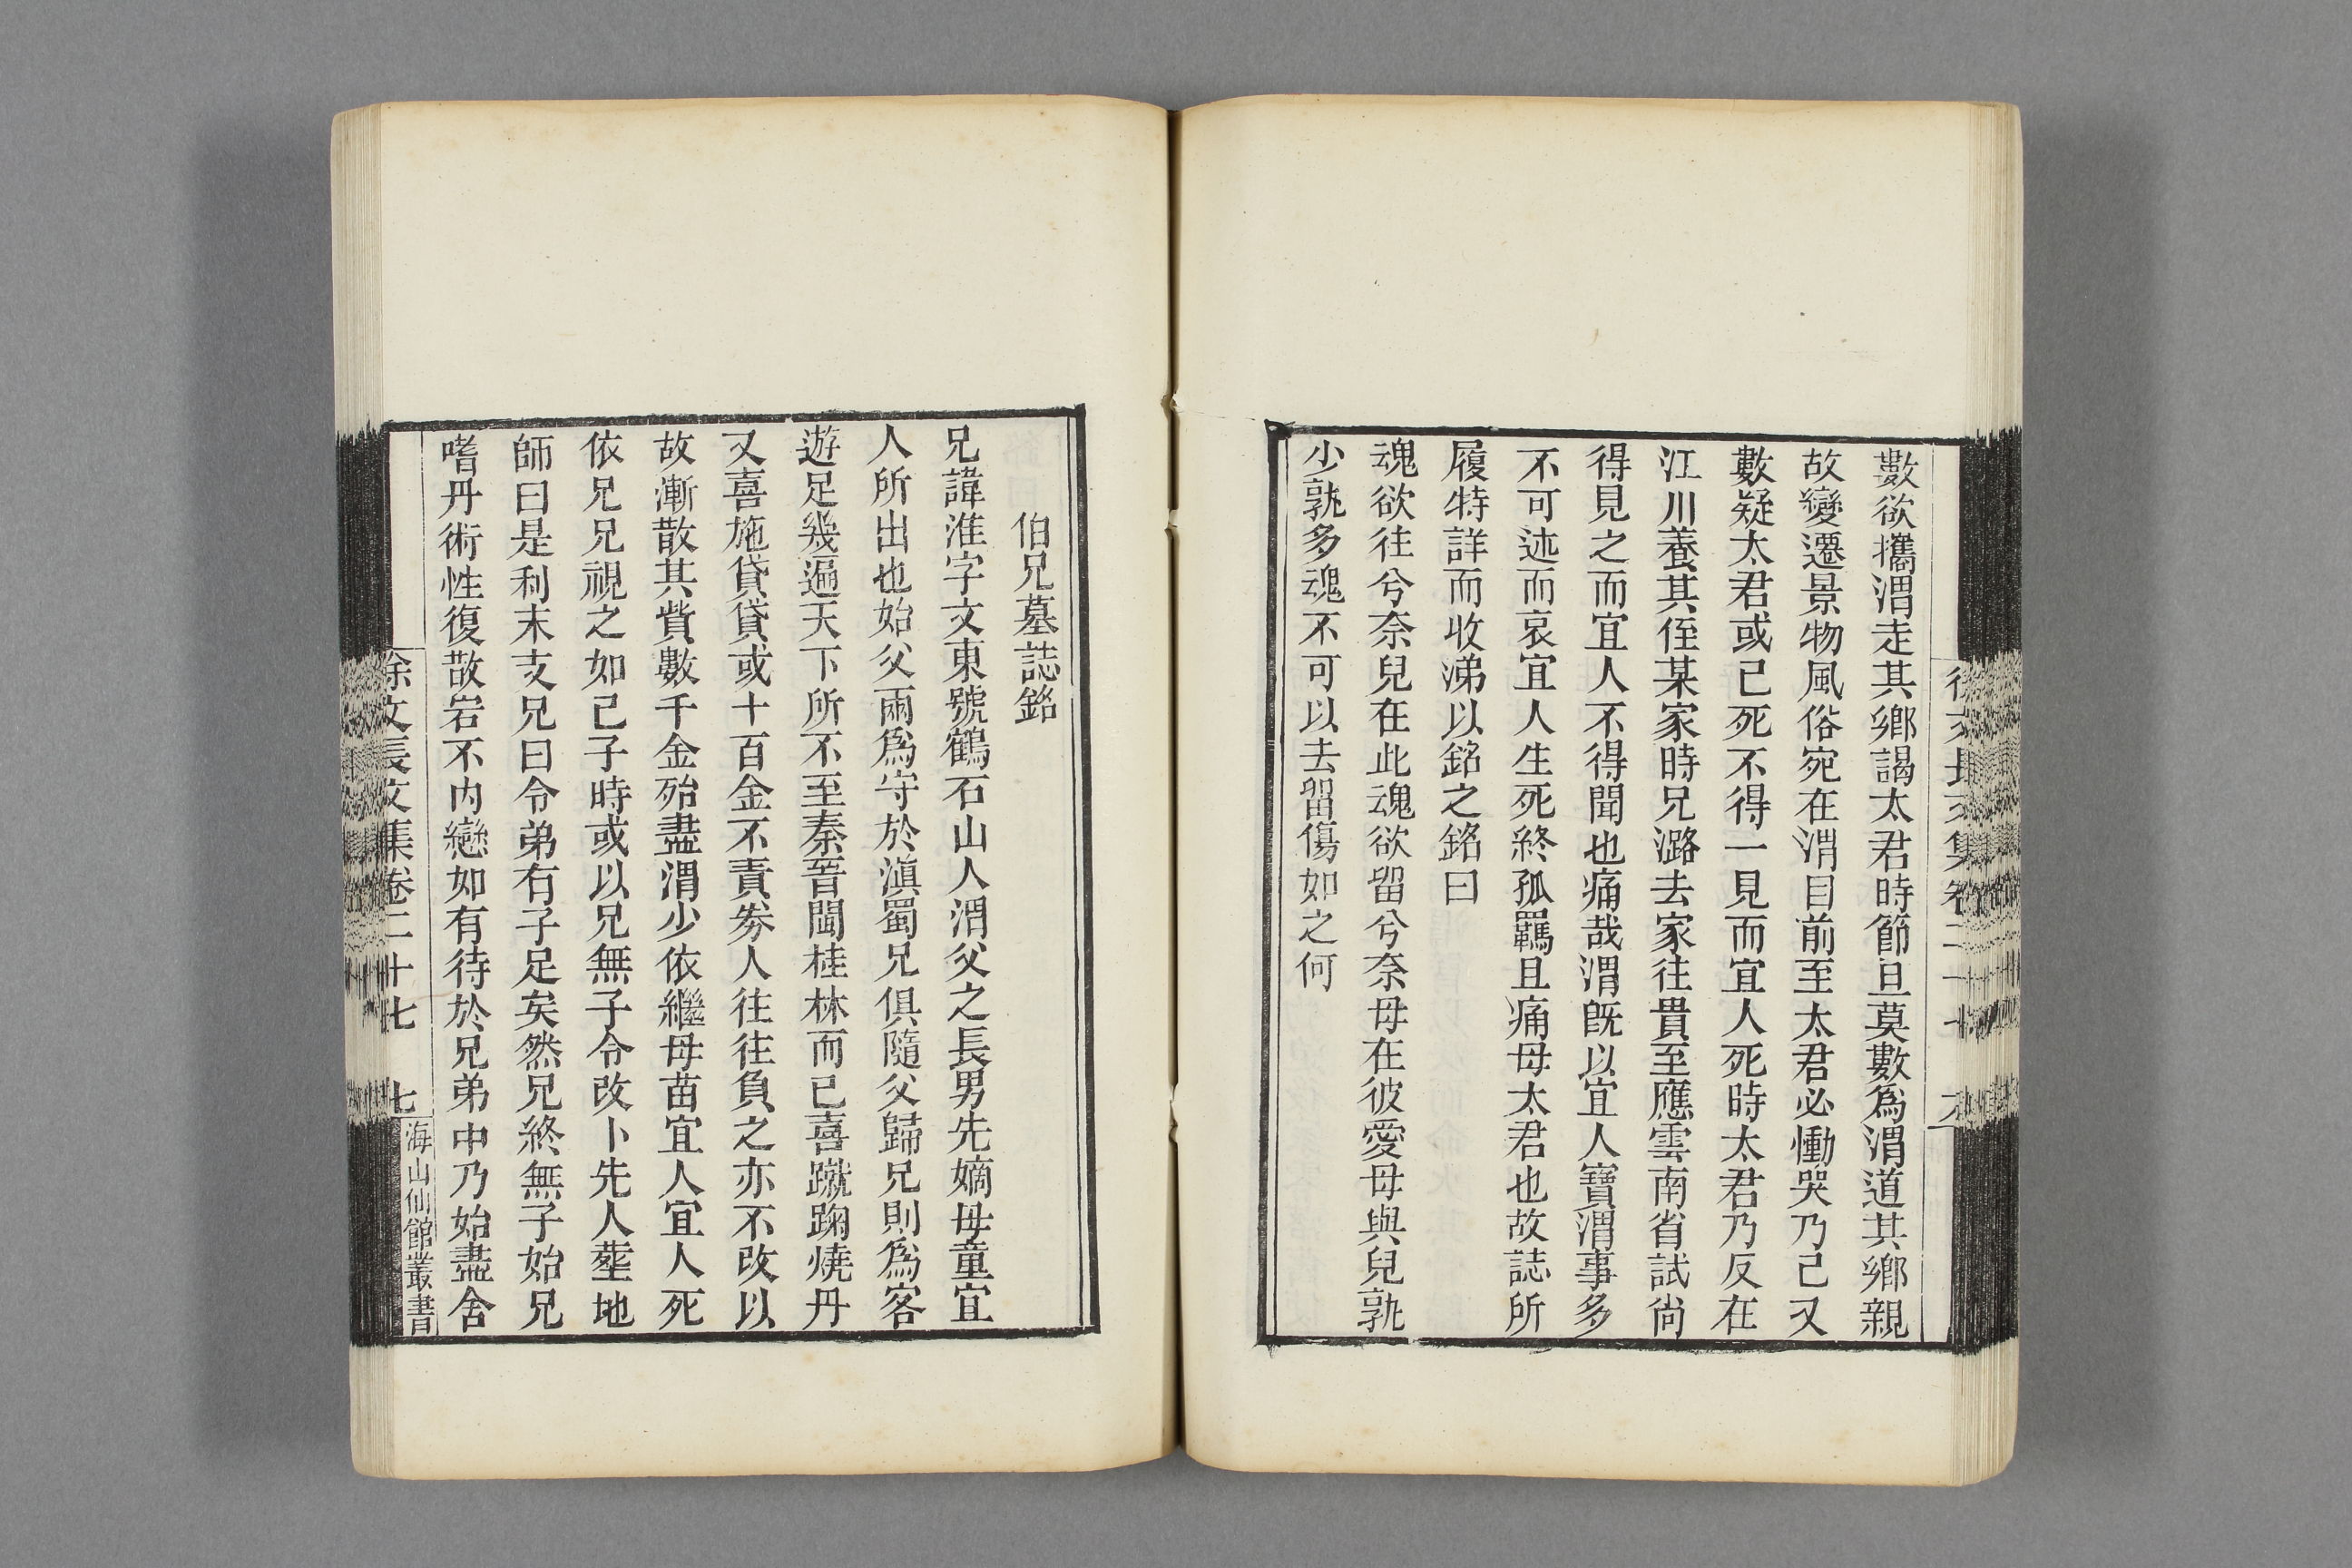 數欲攜渭走其鄉謁太君時節旦莫數爲渭道其鄉親
故變遷景物風俗宛在渭目前至太君必慟哭乃已又
數疑太君或已死不得一見而宜人死時太君乃反在
江川養其侄某家時兄潞去家往貴至應雲南省試尙
得見之而宜人不得聞也痛哉渭旣以宜人寶渭事多
不可迹而哀宜人生死終孤羈且痛母太君也故誌所
履特詳而收涕以銘之銘曰
魂欲往兮奈兒在此魂欲留兮奈母在彼愛母與兒孰
少孰多魂不可以去留傷如之何
伯兄墓誌銘
兄諱淮字文東號鶴石山人渭父之長男先嫡母童宜
人所出也始父兩爲守於滇蜀兄俱隨父歸兄則爲客
遊足幾遍天下所不至秦晉閩桂林而已喜蹴踘燒丹
又喜施貸貸或十百金不責劵人往往負之亦不改以
故漸散其貲數千金殆盡渭少依繼母苗宜人宜人死
依兄兄視之如己子時或以兄無子令改卜先人塟地
師曰是利末支兄曰令弟有子足矣然兄終無子始兄
嗜丹術性復散宕不內戀如有待於兄弟中乃始盡舍
徐文長文集卷二十七 七
海山仙館叢書